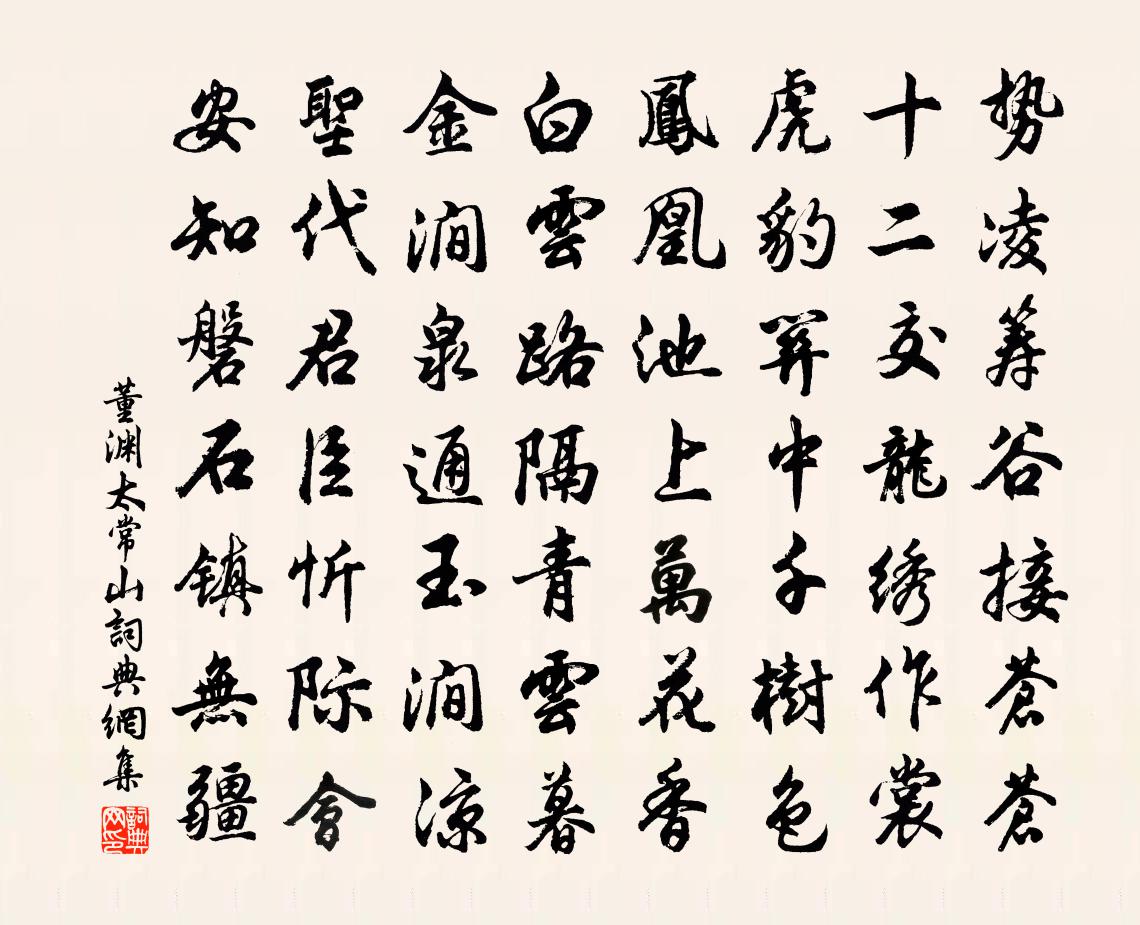 势凌筹谷接蒼蒼
十二交龍綉作裳
虎豹関中千樹色
鳳凰池上萬花香
白雲路隔青雲暮
金澗泉通玉澗凉
聖代君臣忻际會
安知磐石鎮無疆
董渊太常山詞典網集
詞典网印